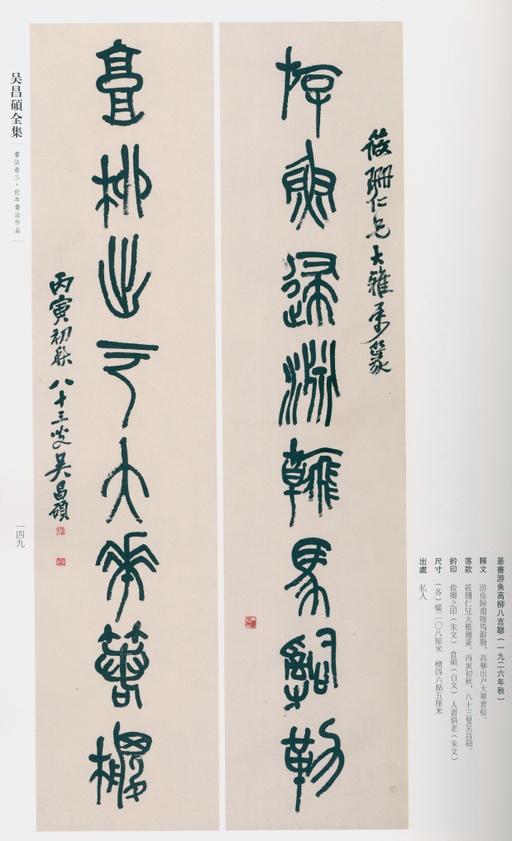 筱珊仁兄大雅屬篆
游魚歸淵翰馬辭勒
高柳出大
丙寅初秋八十三叟吳昌碩
吴昌碩全集
書法卷三·紀年書法作品
一四九
篆書游魚高柳八言聯（一九二六年秋）
釋文 游魚歸淵翰馬辭勒，高柳出戶大草著棕。
落款 筱珊仁兄大雅屬篆。丙寅初秋，八十三叟吳昌碩。
鈐印 俊卿之印（朱文） 倉碩（白文） 人書俱老（朱文）
尺寸 （各）縱二〇八厘米 橫四六點五厘米
出處 私人